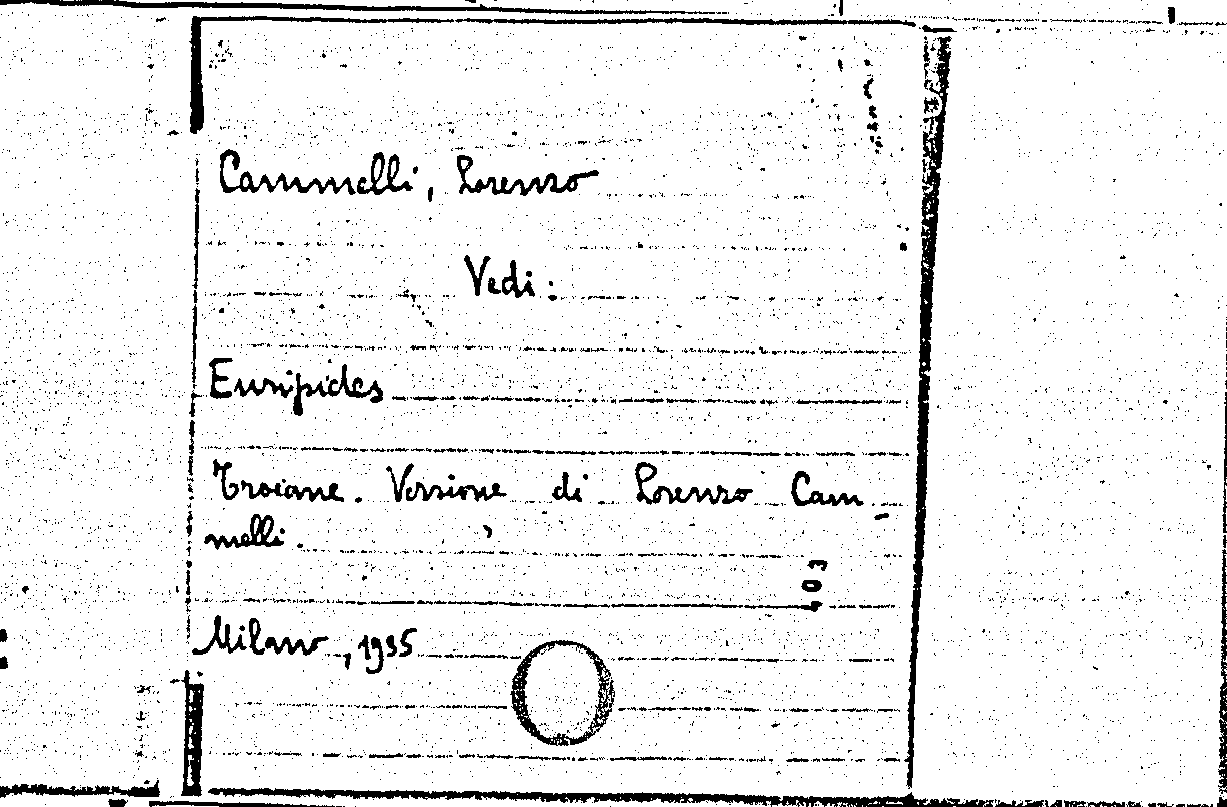 Cammelli, Lorenzo
Vedi:
Euripides
Troiane. Versione di Lorenzo Cam-
melli.
403
Milano, 1935